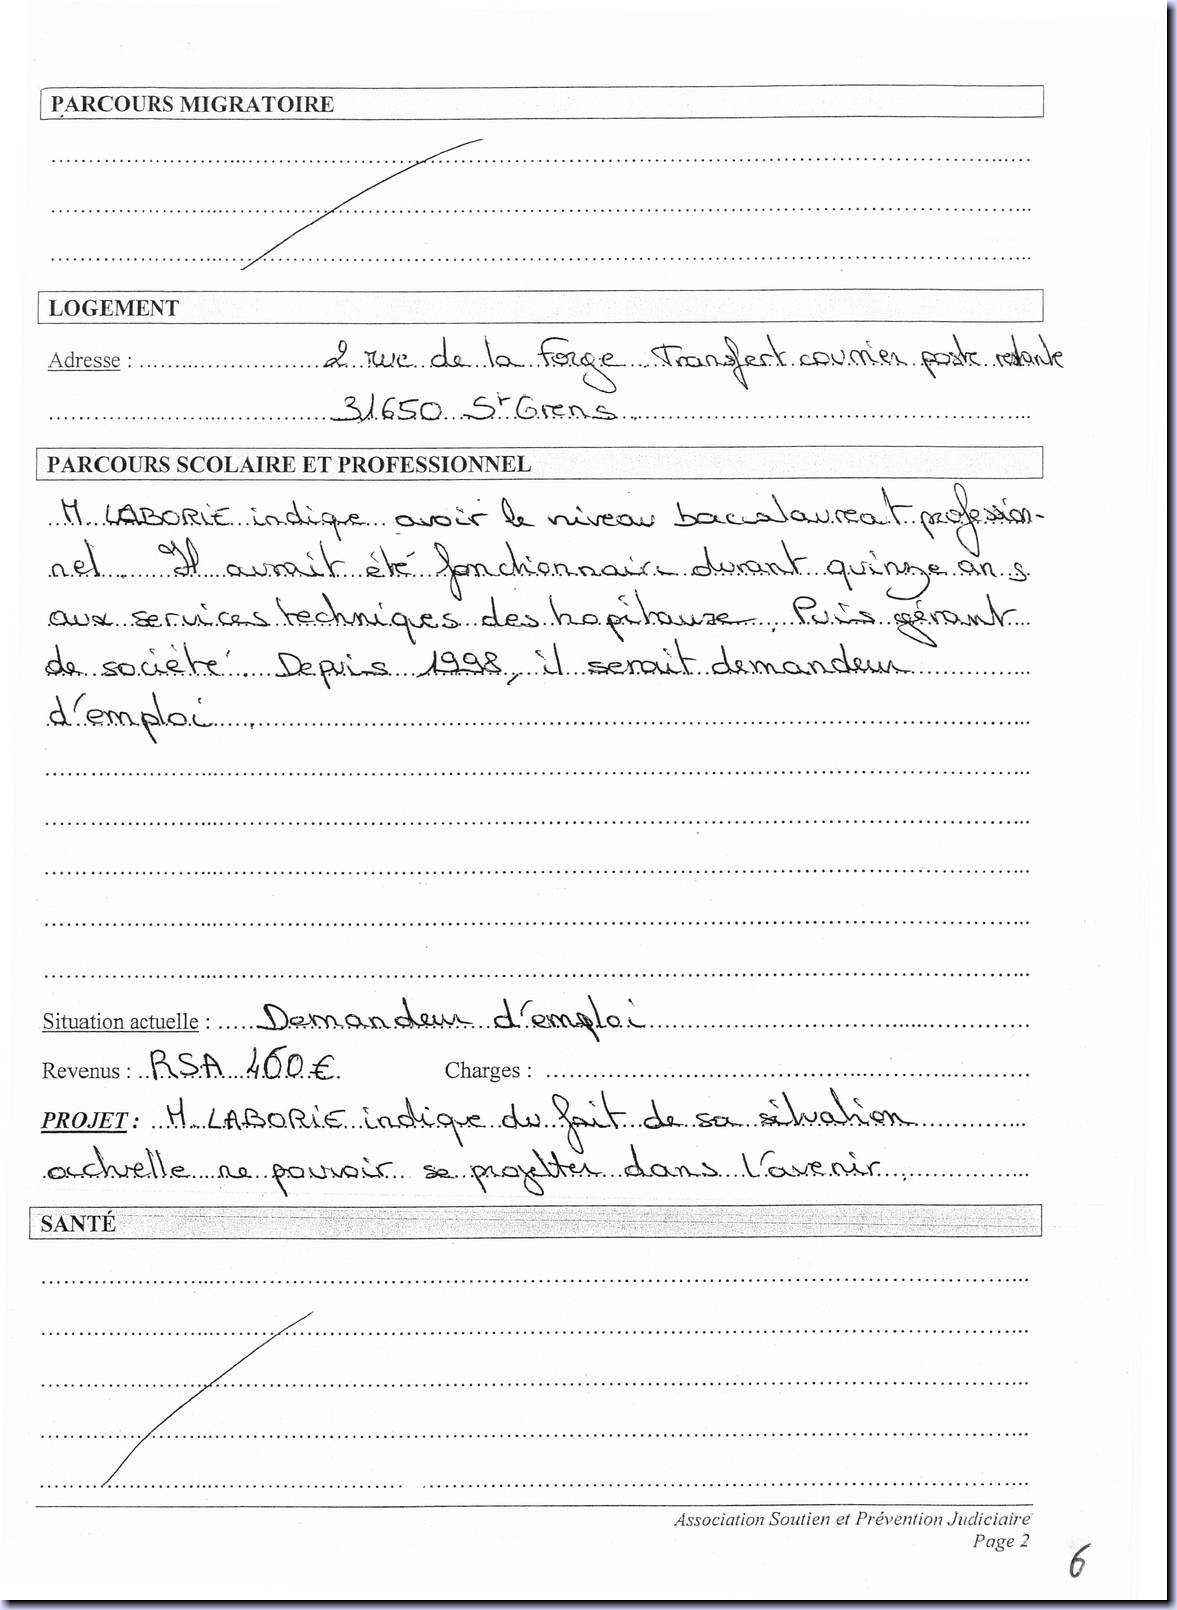 PARCOURS MIGRATOIRE
LOGEMENT
Adresse : 2 rue de la Forge Transfert courrier poste restante
31650 St Orens
PARCOURS SCOLAIRE ET PROFESSIONNEL
M LABORIE indique avoir le niveau baccalaureat profession-
nel. Il aurait été fonctionnaire durant quinze ans
aux services techniques des hopitauxe. Puis gérant
de société. Depuis 1998, il serait demandeur
d'emploi.
Situation actuelle : Demandeur d'emploi
Revenus : RSA 400€. Charges :
PROJET : M LABORIE indique du fait de sa situation
actuelle ne pouvoir se projetter dans l'avenir.
SANTÉ
Association Soutien et Prévention Judiciaire
Page 2
6